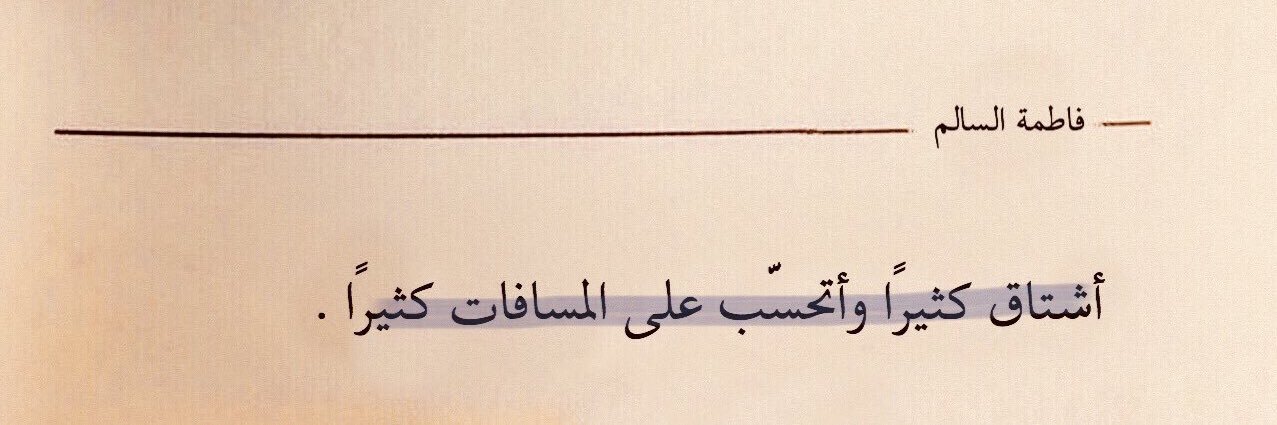 — فاطمة السالم
أشتاق كثيرًا وأتحسّب على المسافات كثيرًا .